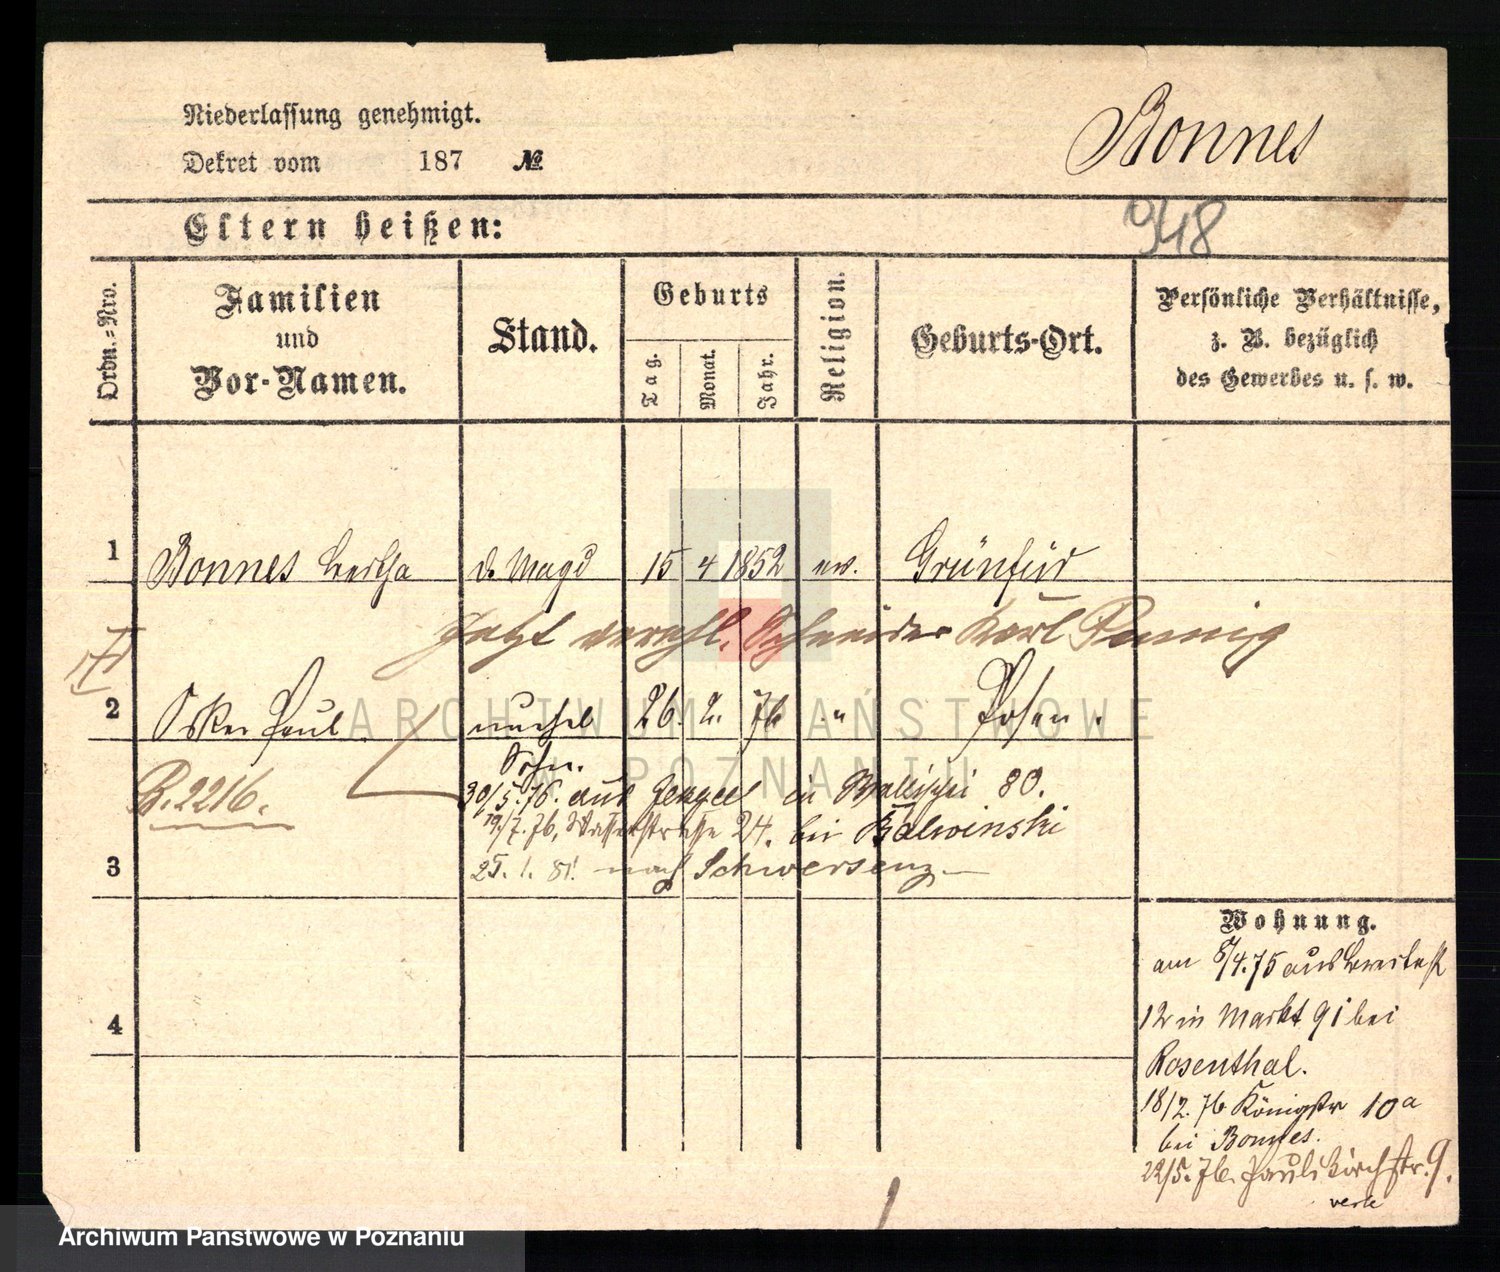 Niederlassung genehmigt.
Dekret vom 187 №
Bonnes
Eltern heißen:
948
Ordn.=Nro.
Familien
und
Vor-Namen.
Stand.
Geburts
Tag.
Monat.
Jahr.
Religion.
Geburts-Ort.
Persönliche Verhältnisse,
z. B. bezüglich
des Gewerbes u. s. w.
1 Bonnes Bertha d. Magd 15 4 1852 ev. Grünfier
Jetzt verehl. Schneider Karl
2 Oskar Paul unehel 26. 2. 76 " Posen.
Sohn.
B. 2216.
30/5. 76. aus in Wallischei 80.
19/7. 76, Wasserstrasse 24. bei Balwinski
3 25. 1. 81. nach Schwersenz.
Wohnung.
am 8/4. 75 aus Breitestr
12 in Markt 91 bei
4
Rosenthal.
18/2. 76 Königstr 10a
bei Bonnes.
22/5. 76. Paulikirchstr. 9.
ARCHIWUM PAŃSTWOWE
W POZNANIU
Archiwum Państwowe w Poznaniu